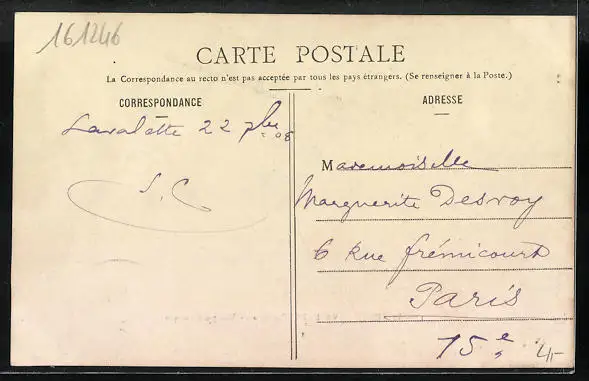 161246
CARTE POSTALE
La Correspondance au recto n'est pas acceptée par tous les pays étrangers. (Se renseigner à la Poste.)
CORRESPONDANCE
ADRESSE
Lavalette 22 08
S. C
Mademoiselle
Marguerite Desroy
6 Rue frémicourt
Paris
15e
4,-